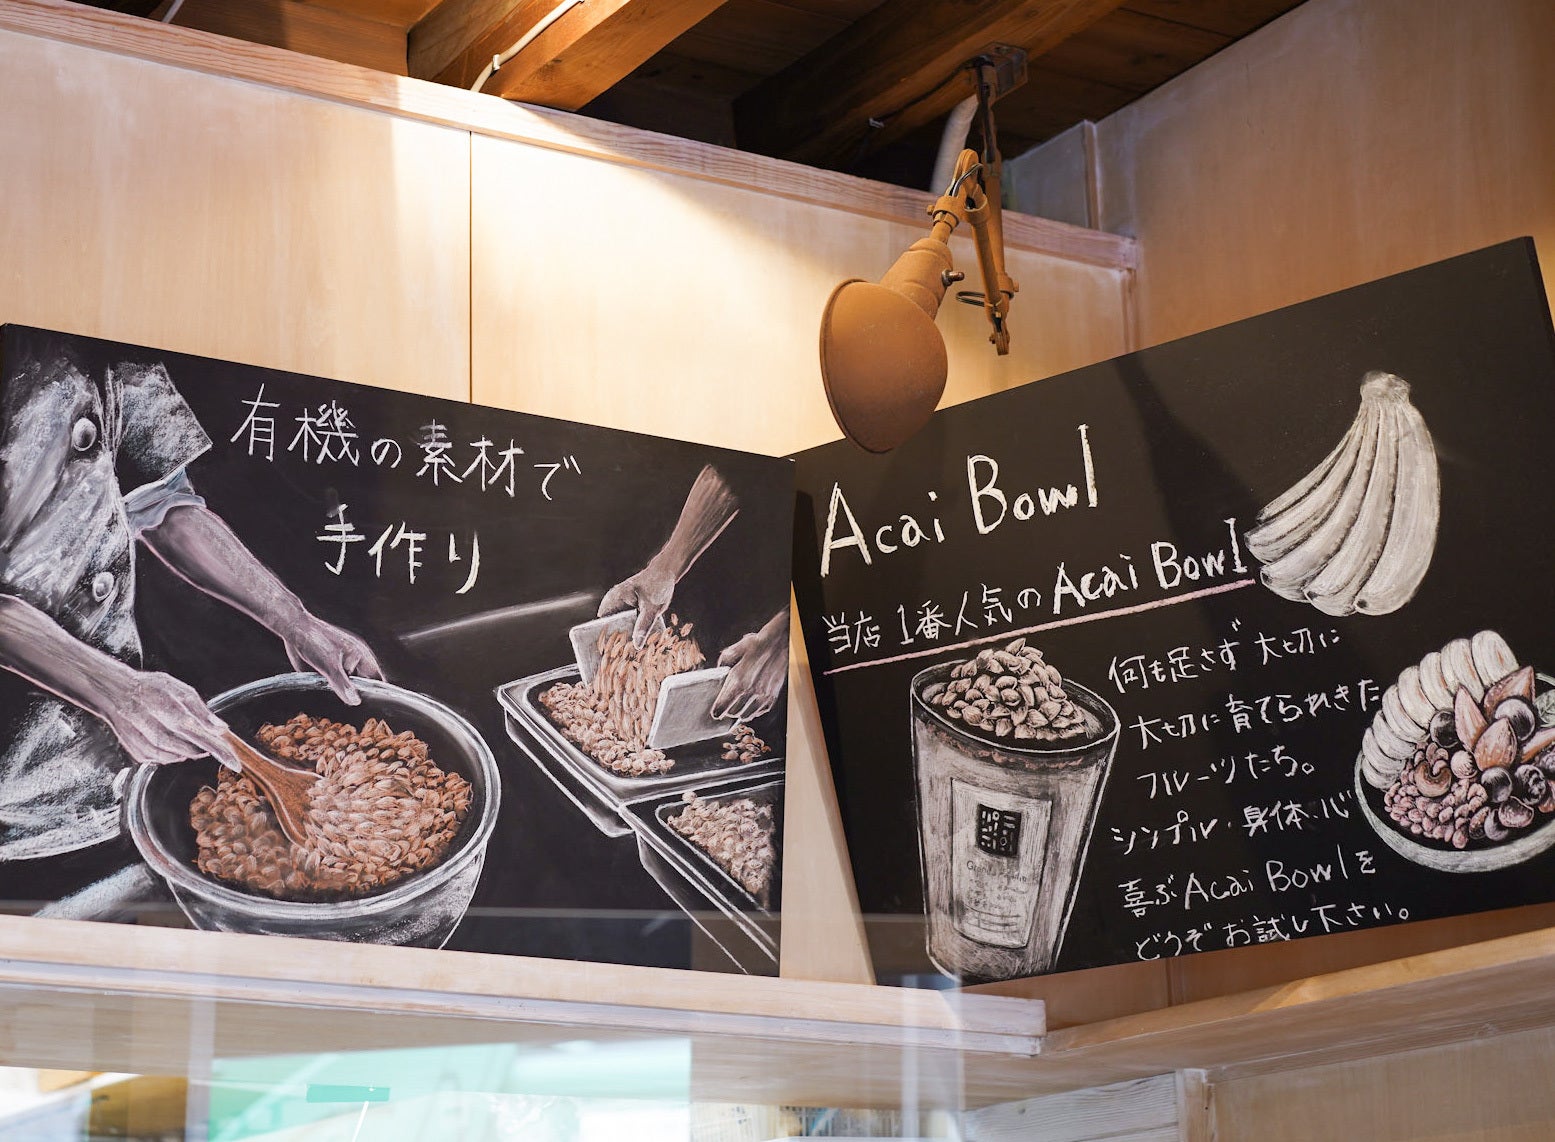 有機の素材で
手作り
Acai Bowl
当店1番人気の Acai Bowl
何も足さず 大切に
大切に育てられきた
フルーツたち。
シンプル・身体・心
喜ぶ Acai Bowlを
どうぞお試し下さい。